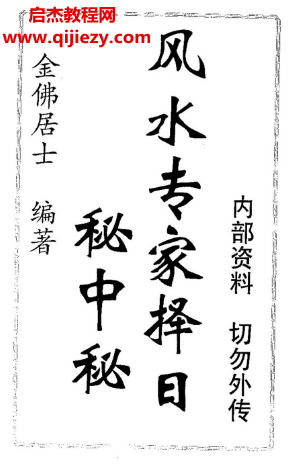 启杰教程网
www.qijiezy.com
内部资料 切勿外传
风水专家择日
秘中秘
金佛居士 编著